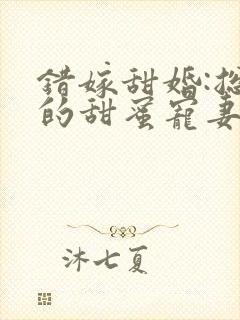 错嫁甜婚:总
的甜蜜宠妻
沐七夏